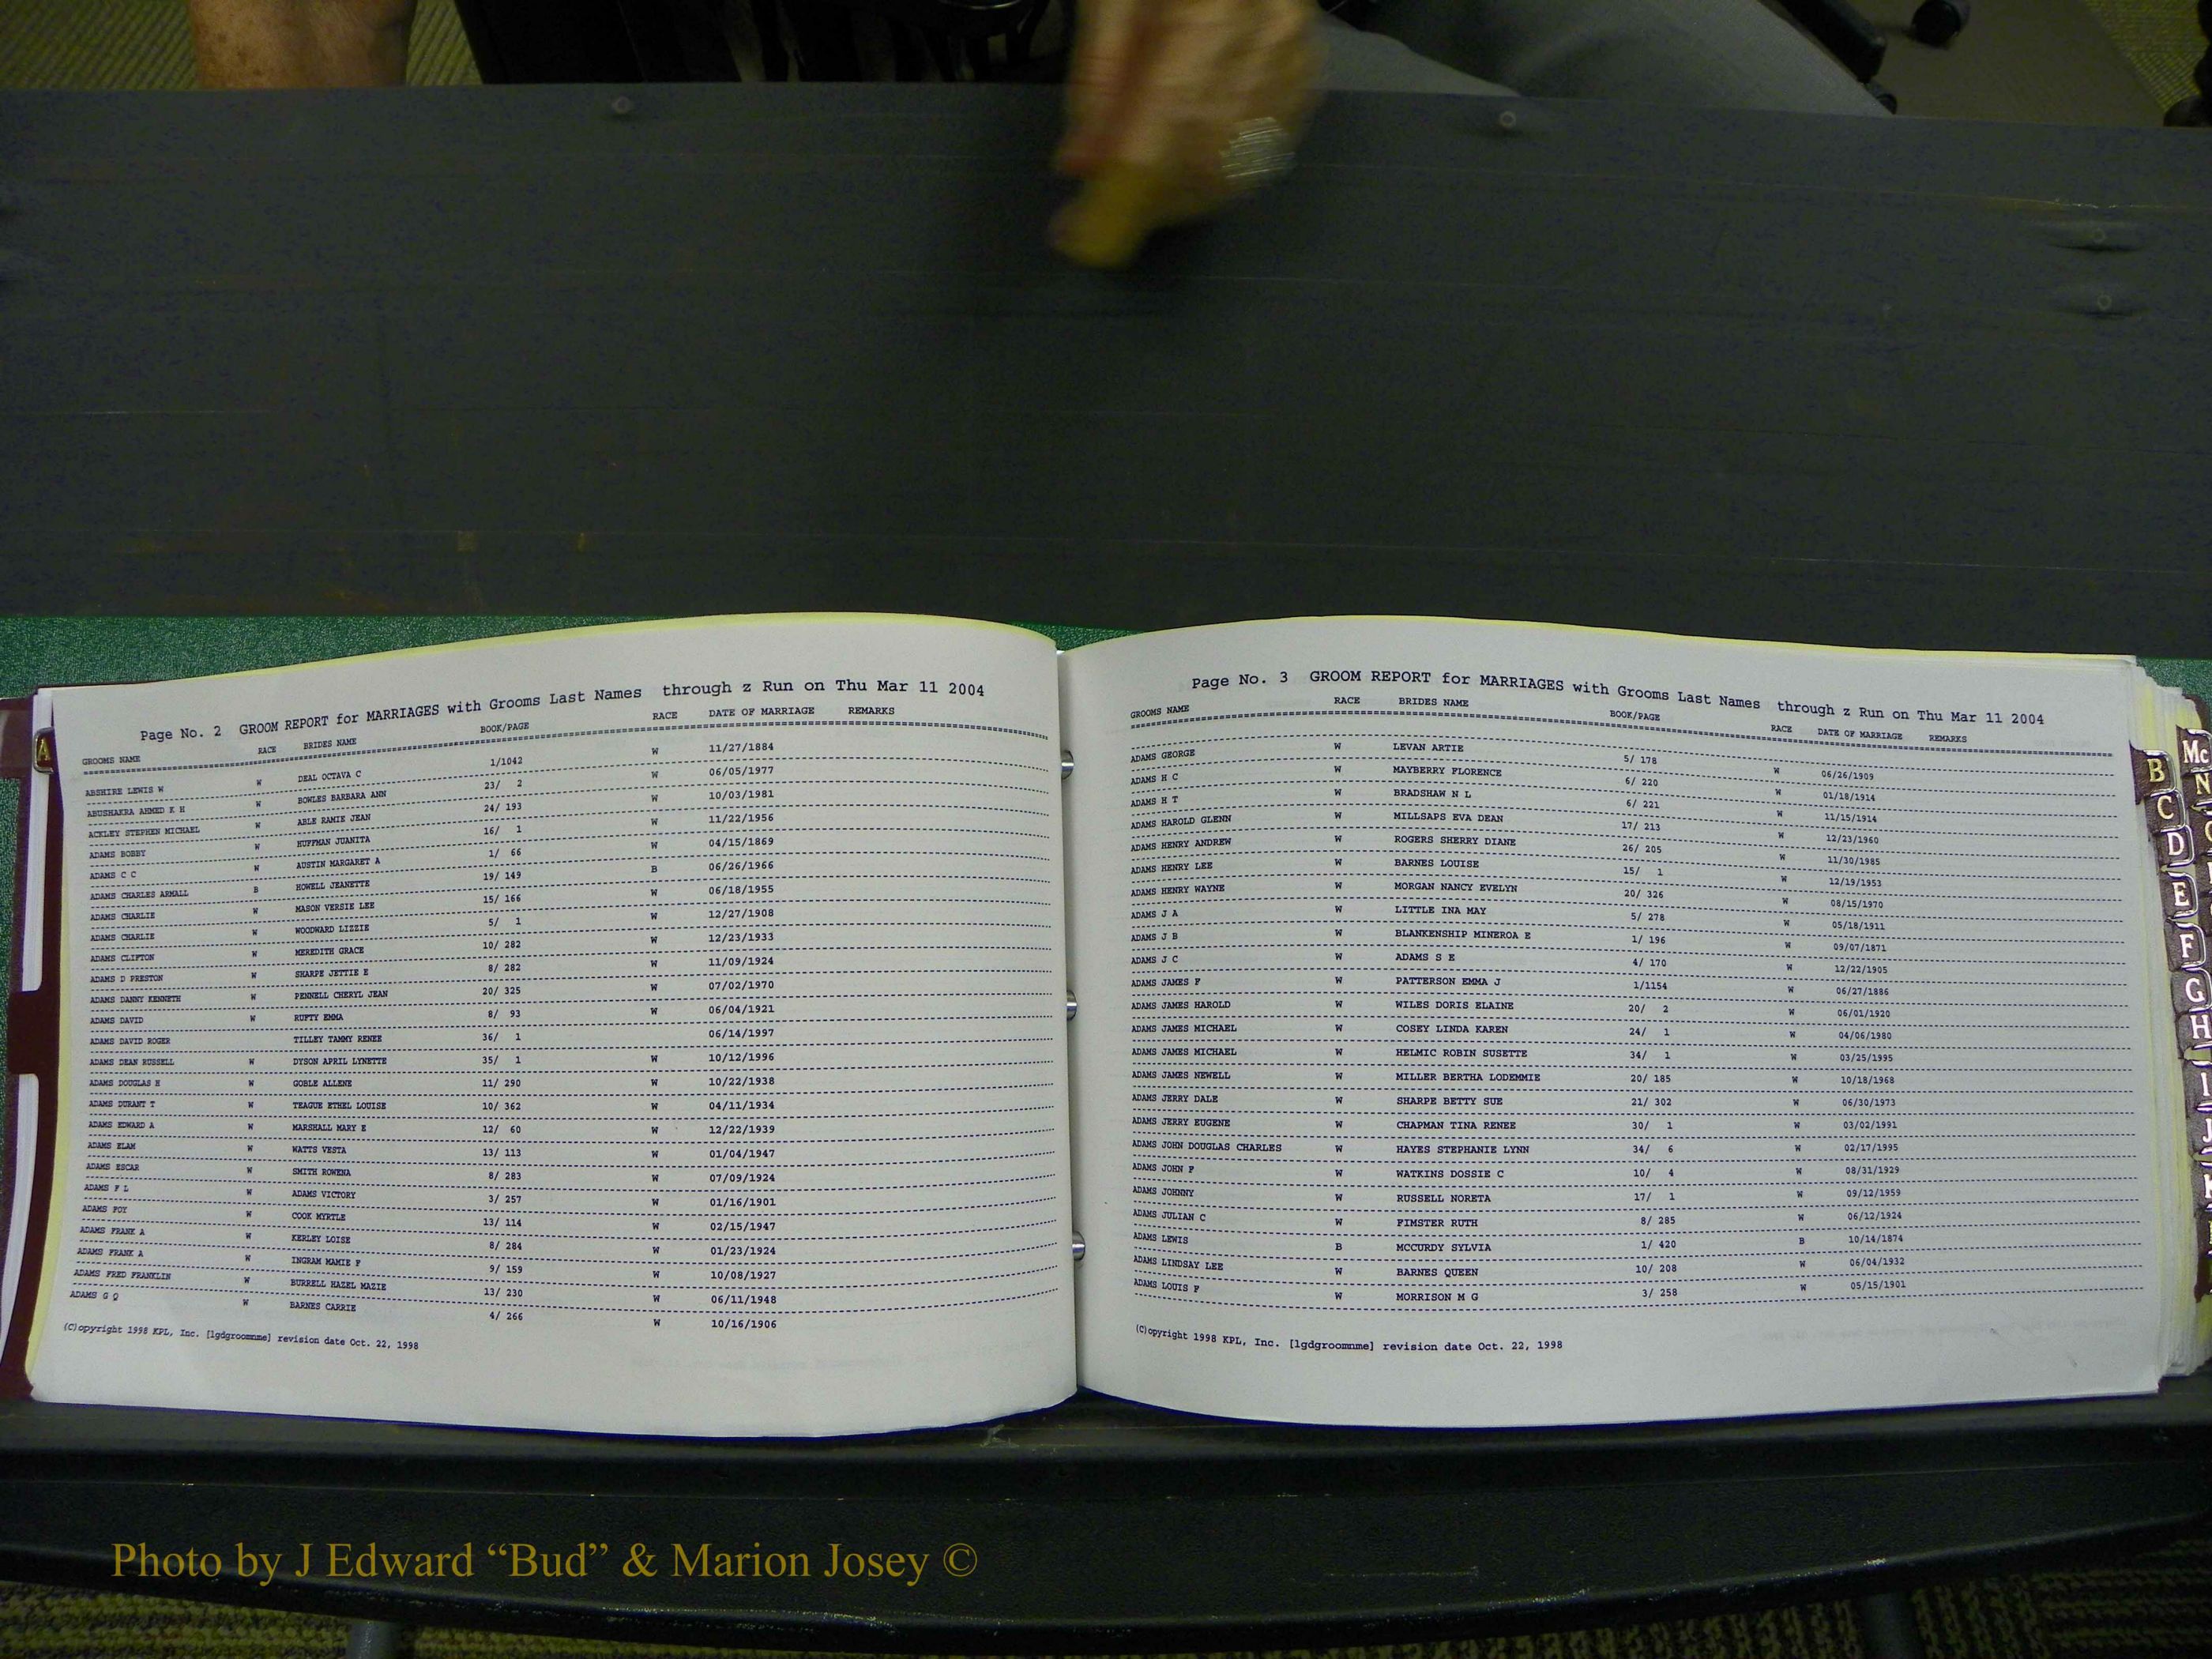 Page No. 2 GROOM REPORT for MARRIAGES with Grooms Last Names through z Run on Thu Mar 11 2004
GROOMS NAME RACE BRIDES NAME BOOK/PAGE RACE DATE OF MARRIAGE REMARKS
ABSHIRE LEWIS W W DEAL OCTAVA C 1/1042 W 11/27/1884
ABUSHAKRA AHMED K H W BOWLES BARBARA ANN 23/ 2 W 06/05/1977
ACKLEY STEPHEN MICHAEL W ABLE RAMIE JEAN 24/ 193 W 10/03/1981
ADAMS BOBBY W HUFFMAN JUANITA 16/ 1 W 11/22/1956
ADAMS C C W AUSTIN MARGARET A 1/ 66 W 04/15/1869
ADAMS CHARLES ARMALL B HOWELL JEANETTE 19/ 149 B 06/26/1966
ADAMS CHARLIE W MASON VERSIE LEE 15/ 166 W 06/18/1955
ADAMS CHARLIE W WOODWARD LIZZIE 5/ 1 W 12/27/1908
ADAMS CLIFTON W MEREDITH GRACE 10/ 282 W 12/23/1933
ADAMS D PRESTON W SHARPE JETTIE E 8/ 282 W 11/09/1924
ADAMS DANNY KENNETH W PENNELL CHERYL JEAN 20/ 325 W 07/02/1970
ADAMS DAVID W RUFTY EMMA 8/ 93 W 06/04/1921
ADAMS DAVID ROGER TILLEY TAMMY RENEE 36/ 1 06/14/1997
ADAMS DEAN RUSSELL W DYSON APRIL LYNETTE 35/ 1 W 10/12/1996
ADAMS DOUGLAS H W GOBLE ALLENE 11/ 290 W 10/22/1938
ADAMS DURANT T W TEAGUE ETHEL LOUISE 10/ 362 W 04/11/1934
ADAMS EDWARD A W MARSHALL MARY E 12/ 60 W 12/22/1939
ADAMS ELAM W WATTS VESTA 13/ 113 W 01/04/1947
ADAMS ESCAR W SMITH ROWENA 8/ 283 W 07/09/1924
ADAMS F L W ADAMS VICTORY 3/ 257 W 01/16/1901
ADAMS FOY W COOK MYRTLE 13/ 114 W 02/15/1947
ADAMS FRANK A W KERLEY LOISE 8/ 284 W 01/23/1924
ADAMS FRANK A W INGRAM MAMIE F 9/ 159 W 10/08/1927
ADAMS FRED FRANKLIN W BURRELL HAZEL MAZIE 13/ 230 W 06/11/1948
ADAMS G Q W BARNES CARRIE 4/ 266 W 10/16/1906
(C)opyright 1998 KPL, Inc. [lgdgroomnme] revision date Oct. 22, 1998
Page No. 3 GROOM REPORT for MARRIAGES with Grooms Last Names through z Run on Thu Mar 11 2004
GROOMS NAME RACE BRIDES NAME BOOK/PAGE RACE DATE OF MARRIAGE REMARKS
ADAMS GEORGE W LEVAN ARTIE 5/ 178 W 06/26/1909
ADAMS H C W MAYBERRY FLORENCE 6/ 220 W 01/18/1914
ADAMS H T W BRADSHAW N L 6/ 221 W 11/15/1914
ADAMS HAROLD GLENN W MILLSAPS EVA DEAN 17/ 213 W 12/23/1960
ADAMS HENRY ANDREW W ROGERS SHERRY DIANE 26/ 205 W 11/30/1985
ADAMS HENRY LEE W BARNES LOUISE 15/ 1 W 12/19/1953
ADAMS HENRY WAYNE W MORGAN NANCY EVELYN 20/ 326 W 08/15/1970
ADAMS J A W LITTLE INA MAY 5/ 278 W 05/18/1911
ADAMS J B W BLANKENSHIP MINEROA E 1/ 196 W 09/07/1871
ADAMS J C W ADAMS S E 4/ 170 W 12/22/1905
ADAMS JAMES F W PATTERSON EMMA J 1/1154 W 06/27/1886
ADAMS JAMES HAROLD W WILES DORIS ELAINE 20/ 2 W 06/01/1920
ADAMS JAMES MICHAEL W COSEY LINDA KAREN 24/ 1 W 04/06/1980
ADAMS JAMES MICHAEL W HELMIC ROBIN SUSETTE 34/ 1 W 03/25/1995
ADAMS JAMES NEWELL W MILLER BERTHA LODEMMIE 20/ 185 W 10/18/1968
ADAMS JERRY DALE W SHARPE BETTY SUE 21/ 302 W 06/30/1973
ADAMS JERRY EUGENE W CHAPMAN TINA RENEE 30/ 1 W 03/02/1991
ADAMS JOHN DOUGLAS CHARLES W HAYES STEPHANIE LYNN 34/ 6 W 02/17/1995
ADAMS JOHN F W WATKINS DOSSIE C 10/ 4 W 08/31/1929
ADAMS JOHNNY W RUSSELL NORETA 17/ 1 W 09/12/1959
ADAMS JULIAN C W FIMSTER RUTH 8/ 285 W 06/12/1924
ADAMS LEWIS B MCCURDY SYLVIA 1/ 420 B 10/14/1874
ADAMS LINDSAY LEE W BARNES QUEEN 10/ 208 W 06/04/1932
ADAMS LOUIS F W MORRISON M G 3/ 258 W 05/15/1901
(C)opyright 1998 KPL, Inc. [lgdgroomnme] revision date Oct. 22, 1998
A
B
C
D
E
F
G
H
I
J
K
Mc
N
Photo by J Edward “Bud” & Marion Josey ©